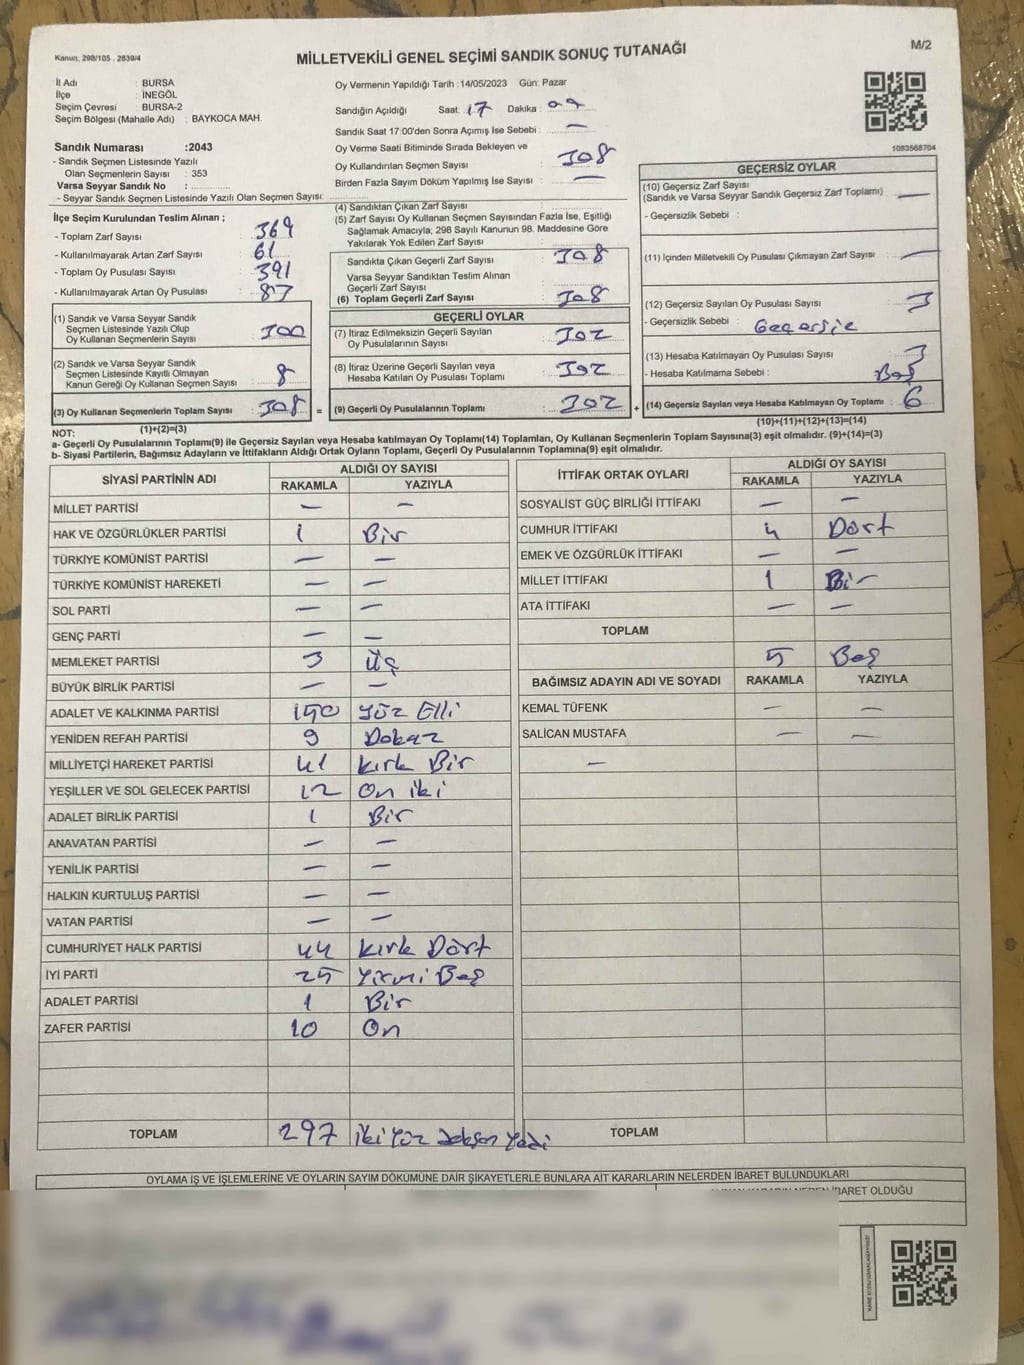 Kanun, 298/105 , 2839/4
MİLLETVEKİLİ GENEL SEÇİMİ SANDIK SONUÇ TUTANAĞI
M/2
İl Adı : BURSA
İlçe : İNEGÖL
Seçim Çevresi : BURSA-2
Seçim Bölgesi (Mahalle Adı) : BAYKOCA MAH.
Sandık Numarası :2043
- Sandık Seçmen Listesinde Yazılı
Olan Seçmenlerin Sayısı : 353
Varsa Seyyar Sandık No :
- Seyyar Sandık Seçmen Listesinde Yazılı Olan Seçmen Sayısı:
Oy Vermenin Yapıldığı Tarih :14/05/2023 Gün: Pazar
Sandığın Açıldığı Saat: 17 Dakika :
Sandık Saat 17:00'den Sonra Açımış İse Sebebi : —
Oy Verme Saati Bitiminde Sırada Bekleyen ve
Oy Kullandırılan Seçmen Sayısı : 308
Birden Fazla Sayım Döküm Yapılmış İse Sayısı : —
1083568704
İlçe Seçim Kurulundan Teslim Alınan ;
- Toplam Zarf Sayısı : 369
- Kullanılmayarak Artan Zarf Sayısı : 61
- Toplam Oy Pusulası Sayısı : 391
- Kullanılmayarak Artan Oy Pusulası : 83
(1) Sandık ve Varsa Seyyar Sandık
Seçmen Listesinde Yazılı Olup
Oy Kullanan Seçmenlerin Sayısı : 300
(2) Sandık ve Varsa Seyyar Sandık
Seçmen Listesinde Kayıtlı Olmayan
Kanun Gereği Oy Kullanan Seçmen Sayısı : 8
(3) Oy Kullanan Seçmenlerin Toplam Sayısı : 308 =
(1)+(2)=(3)
(4) Sandıktan Çıkan Zarf Sayısı :
(5) Zarf Sayısı Oy Kullanan Seçmen Sayısından Fazla İse, Eşitliği
Sağlamak Amacıyla; 298 Sayılı Kanunun 98. Maddesine Göre
Yakılarak Yok Edilen Zarf Sayısı :
Sandıkta Çıkan Geçerli Zarf Sayısı : 308
Varsa Seyyar Sandıktan Teslim Alınan
Geçerli Zarf Sayısı :
(6) Toplam Geçerli Zarf Sayısı : 308
GEÇERLİ OYLAR
(7) İtiraz Edilmeksizin Geçerli Sayılan
Oy Pusulalarının Sayısı : 302
(8) İtiraz Üzerine Geçerli Sayılan veya
Hesaba Katılan Oy Pusulası Toplamı : 302
(9) Geçerli Oy Pusulalarının Toplamı : 302 +
GEÇERSİZ OYLAR
(10) Geçersiz Zarf Sayısı
(Sandık ve Varsa Seyyar Sandık Geçersiz Zarf Toplamı) : —
- Geçersizlik Sebebi :
(11) İçinden Milletvekili Oy Pusulası Çıkmayan Zarf Sayısı : —
(12) Geçersiz Sayılan Oy Pusulası Sayısı : 3
- Geçersizlik Sebebi :
(13) Hesaba Katılmayan Oy Pusulası Sayısı : 3
- Hesaba Katılmama Sebebi : Boş
(14) Geçersiz Sayılan veya Hesaba Katılmayan Oy Toplamı : 6
(10)+(11)+(12)+(13)=(14)
NOT:
a- Geçerli Oy Pusulalarının Toplamı(9) ile Geçersiz Sayılan veya Hesaba katılmayan Oy Toplamı(14) Toplamları, Oy Kullanan Seçmenlerin Toplam Sayısına(3) eşit olmalıdır. (9)+(14)=(3)
b- Siyasi Partilerin, Bağımsız Adayların ve İttifakların Aldığı Ortak Oyların Toplamı, Geçerli Oy Pusulalarının Toplamına(9) eşit olmalıdır.
SİYASİ PARTİNİN ADI ALDIĞI OY SAYISI
RAKAMLA YAZIYLA
MİLLET PARTİSİ — —
HAK VE ÖZGÜRLÜKLER PARTİSİ 1 Bir
TÜRKİYE KOMÜNİST PARTİSİ — —
TÜRKİYE KOMÜNİST HAREKETİ — —
SOL PARTİ — —
GENÇ PARTİ — —
MEMLEKET PARTİSİ 3 Üç
BÜYÜK BİRLİK PARTİSİ — —
ADALET VE KALKINMA PARTİSİ 150 Yüz Elli
YENİDEN REFAH PARTİSİ 9 Dokuz
MİLLİYETÇİ HAREKET PARTİSİ 41 Kırk Bir
YEŞİLLER VE SOL GELECEK PARTİSİ 12 On iki
ADALET BİRLİK PARTİSİ 1 Bir
ANAVATAN PARTİSİ — —
YENİLİK PARTİSİ — —
HALKIN KURTULUŞ PARTİSİ — —
VATAN PARTİSİ — —
CUMHURİYET HALK PARTİSİ 44 Kırk Dört
İYİ PARTİ 25 Yirmi Beş
ADALET PARTİSİ 1 Bir
ZAFER PARTİSİ 10 On
TOPLAM 297 iki Yüz Doksan Yedi
İTTİFAK ORTAK OYLARI ALDIĞI OY SAYISI
RAKAMLA YAZIYLA
SOSYALİST GÜÇ BİRLİĞİ İTTİFAKI — —
CUMHUR İTTİFAKI 4 Dört
EMEK VE ÖZGÜRLÜK İTTİFAKI — —
MİLLET İTTİFAKI 1 Bir
ATA İTTİFAKI — —
TOPLAM
5 Beş
BAĞIMSIZ ADAYIN ADI VE SOYADI RAKAMLA YAZIYLA
KEMAL TÜFENK — —
SALİCAN MUSTAFA — —
—
TOPLAM
OYLAMA İŞ VE İŞLEMLERİNE VE OYLARIN SAYIM DÖKÜMÜNE DAİR ŞİKAYETLERLE BUNLARA AİT KARARLARIN NELERDEN İBARET BULUNDUKLARI
İBARET OLDUĞU